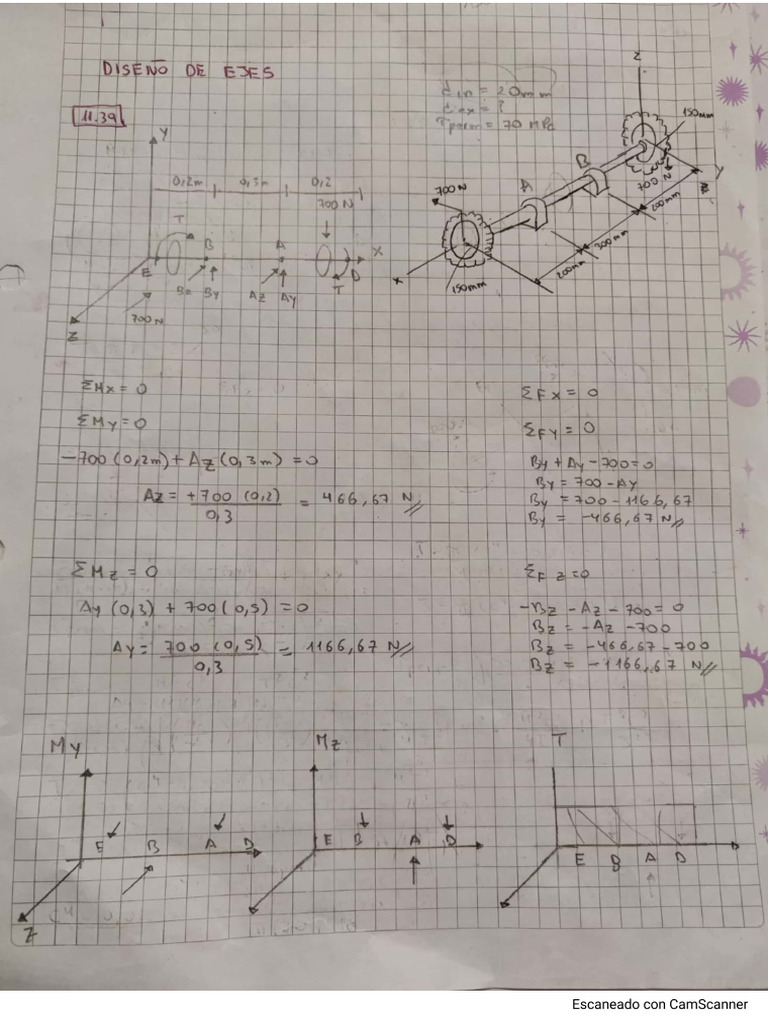 DISEÑO DE EJES
11.39
din = 20mm
dex = ?
Tperm = 70 MPa
Z
150mm
Y
700 N
B
A
200mm
300mm
200mm
X
150mm
700 N
Y
0,2m
0,3m
0,2
700 N
T
B
A
X
E
D
T
Bz
By
Az
Ay
700 N
Z
ΣMx = 0
ΣMy = 0
-700 (0,2m) + Az (0,3m) = 0
Az = +700 (0,2) / 0,3 = 466,67 N
ΣMz = 0
Ay (0,3) + 700 (0,5) = 0
Ay = 700 (0,5) / 0,3 = 1166,67 N
ΣFx = 0
ΣFy = 0
By + Ay - 700 = 0
By = 700 - Ay
By = 700 - 1166,67
By = -466,67 N
ΣF z = 0
-Bz - Az - 700 = 0
Bz = -Az - 700
Bz = -466,67 - 700
Bz = -1166,67 N
My
E B A D
Z
Mz
E B A D
T
E B A D
Escaneado con CamScanner